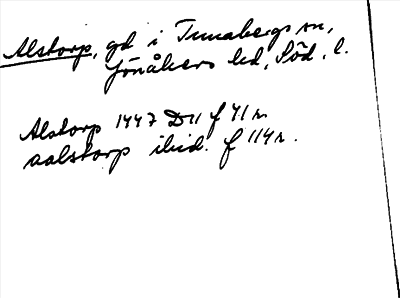 Alstorp, gd i Tunabergs sn,
Jönåkers hd, Söd. l.
Alstorp 1447 D11 f 41 r
aalstorp ibid. f 114 r.